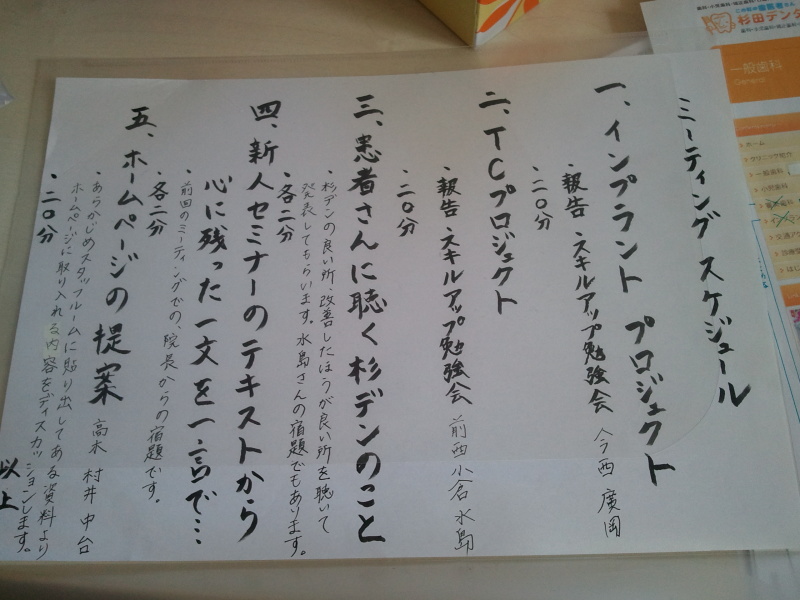 ミーティング スケジュール
一、インプラント プロジェクト
・報告 スキルアップ勉強会 今西 廣岡
・二〇分
二、TCプロジェクト
・報告 スキルアップ勉強会 前西 小倉 水島
・二〇分
三、患者さんに聴く杉デンのこと
・杉デンの良い所、改善したほうが良い所を聴いて
発表してもらいます。水島さんの宿題でもあります。
・各二分
四、新人セミナーのテキストから
心に残った一文を一言で…
・前回のミーティングでの、院長からの宿題です。
・各二分
五、ホームページの提案 高木 村井 中台
・あらかじめスタッフルームに貼り出してある資料より
ホームページに取り入れる内容をディスカッションします。
・二〇分
以上
杉田デンタ
一般歯科
General
ホーム
クリニック紹介
一般歯科
小児歯科